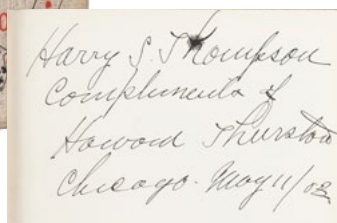 Harry S. Thompson
Compliments of
Howard Thurston
Chicago. May 11/08